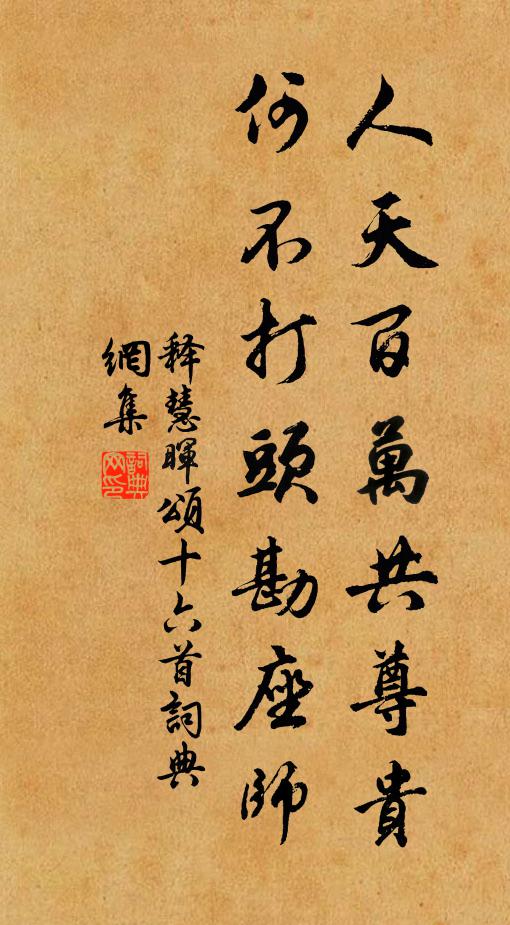 人天百萬共尊貴
何不打頭勘座師
释慧暉頌十六首詞典
網集
詞典網印